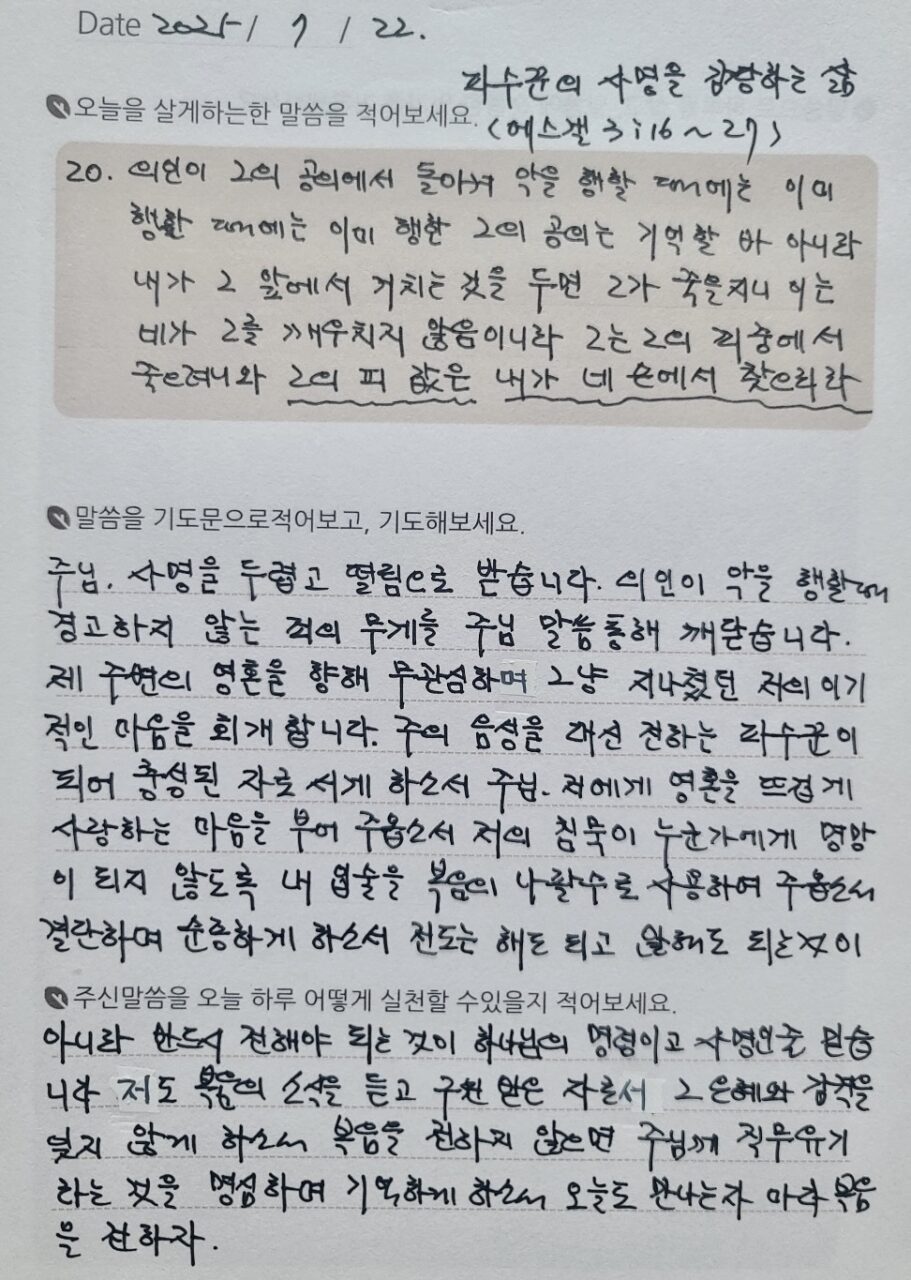 Date 2025 / 7 / 22.
파수꾼의 사명을 감당하는 삶
오늘을 살게하는한 말씀을 적어보세요.
(에스겔 3:16~27)
20. 의인이 그의 공의에서 돌아서 악을 행할 때에는 이미
행할 때에는 이미 행한 그의 공의는 기억할 바 아니라
내가 그 앞에서 거치는 것을 두면 그가 죽을지니 이는
네가 그를 깨우치지 않음이니라 그는 그의 죄 중에서
죽으려니와 그의 피 값은 내가 네 손에서 찾으리라
말씀을 기도문으로적어보고, 기도해보세요.
주님. 사명을 두렵고 떨림으로 받습니다. 의인이 악을 행할때
경고하지 않는 죄의 무게를 주님 말씀통해 깨닫습니다.
제 주변의 영혼을 향해 무관심하며 그냥 지나쳤던 저의 이기
적인 마음을 회개합니다. 주의 음성을 대신 전하는 파수꾼이
되어 충성된 자로 서게 하소서 주님. 저에게 영혼을 뜨겁게
사랑하는 마음을 부어 주옵소서 저의 침묵이 누군가에게 멸망
이 되지 않도록 내 입술을 복음의 나팔수로 사용하여 주옵소서
결단하며 순종하게 하소서 전도는 해도 되고 안해도 되는것이
주신말씀을 오늘 하루 어떻게 실천할 수있을지 적어보세요.
아니라 반드시 전해야 되는 것이 하나님의 명령이고 사명인줄 믿습
니다 저도 복음의 소식을 듣고 구원 받은 자로서 그 은혜와 감격을
잊지 않게 하소서 복음을 전하지 않으면 주님께 직무유기
라는 것을 명심하며 기억하게 하소서 오늘도 만나는자 마다 복음
을 전하자.